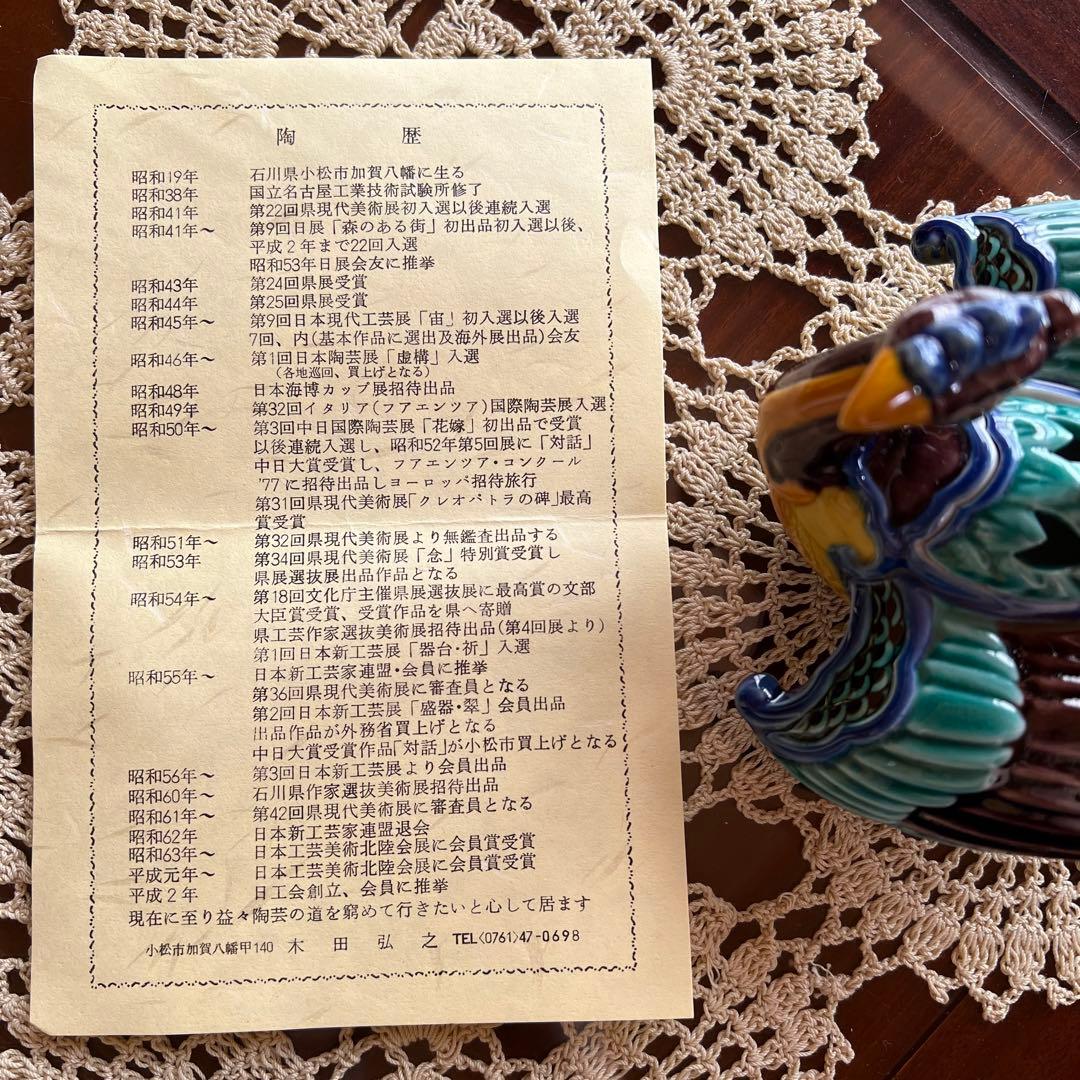 陶 歴
昭和19年 石川県小松市加賀八幡に生る
昭和38年 国立名古屋工業技術試験所修了
昭和41年 第22回県現代美術展初入選以後連続入選
昭和41年〜 第9回日展「森のある街」初出品初入選以後、
平成2年まで22回入選
昭和53年日展会友に推挙
昭和43年 第24回県展受賞
昭和44年 第25回県展受賞
昭和45年〜 第9回日本現代工芸展「宙」初入選以後入選
7回、内(基本作品に選出及海外展出品)会友
昭和46年〜 第1回日本陶芸展「虚構」入選
(各地巡回、買上げとなる)
昭和48年 日本海博カップ展招待出品
昭和49年 第32回イタリア(フアエンツア)国際陶芸展入選
昭和50年〜 第3回中日国際陶芸展「花嫁」初出品で受賞
以後連続入選し、昭和52年第5回展に「対話」
中日大賞受賞し、フアエンツア・コンクール
'77に招待出品しヨーロッパ招待旅行
第31回県現代美術展「クレオパトラの碑」最高
賞受賞
昭和51年〜 第32回県現代美術展より無鑑査出品する
昭和53年 第34回県現代美術展「念」特別賞受賞し
県展選抜展出品作品となる
昭和54年〜 第18回文化庁主催県展選抜展に最高賞の文部
大臣賞受賞、受賞作品を県へ寄贈
県工芸作家選抜美術展招待出品(第4回展より)
第1回日本新工芸展「器台・祈」入選
昭和55年〜 日本新工芸家連盟・会員に推挙
第36回県現代美術展に審査員となる
第2回日本新工芸展「盛器・翠」会員出品
出品作品が外務省買上げとなる
中日大賞受賞作品「対話」が小松市買上げとなる
昭和56年〜 第3回日本新工芸展より会員出品
昭和60年〜 石川県作家選抜美術展招待出品
昭和61年〜 第42回県現代美術展に審査員となる
昭和62年 日本新工芸家連盟退会
昭和63年〜 日本工芸美術北陸会展に会員賞受賞
平成元年〜 日本工芸美術北陸会展に会員賞受賞
平成2年 日工会創立、会員に推挙
現在に至り益々陶芸の道を窮めて行きたいと心して居ます
小松市加賀八幡甲140 木田弘之 TEL〈0761〉47-0698